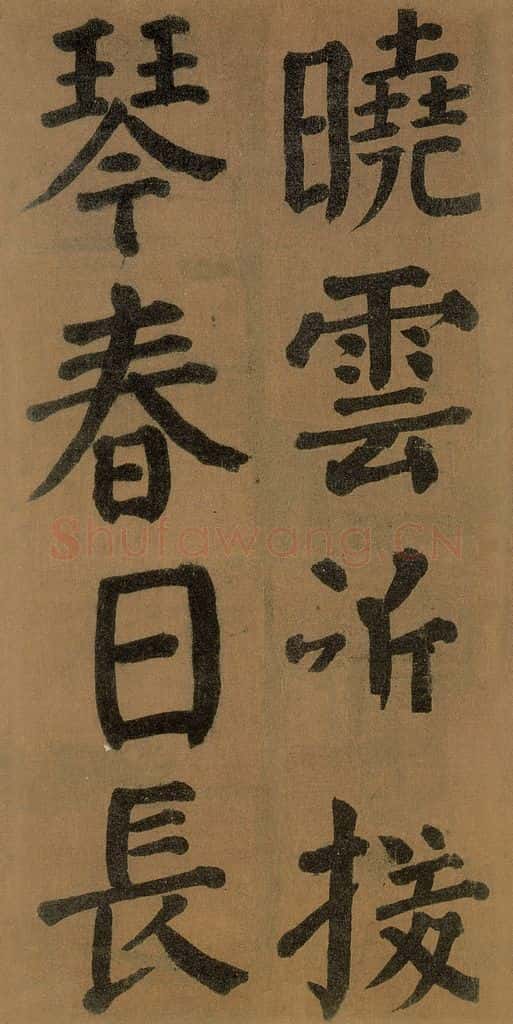 曉雲援
琴春日長
Shufawang.CN